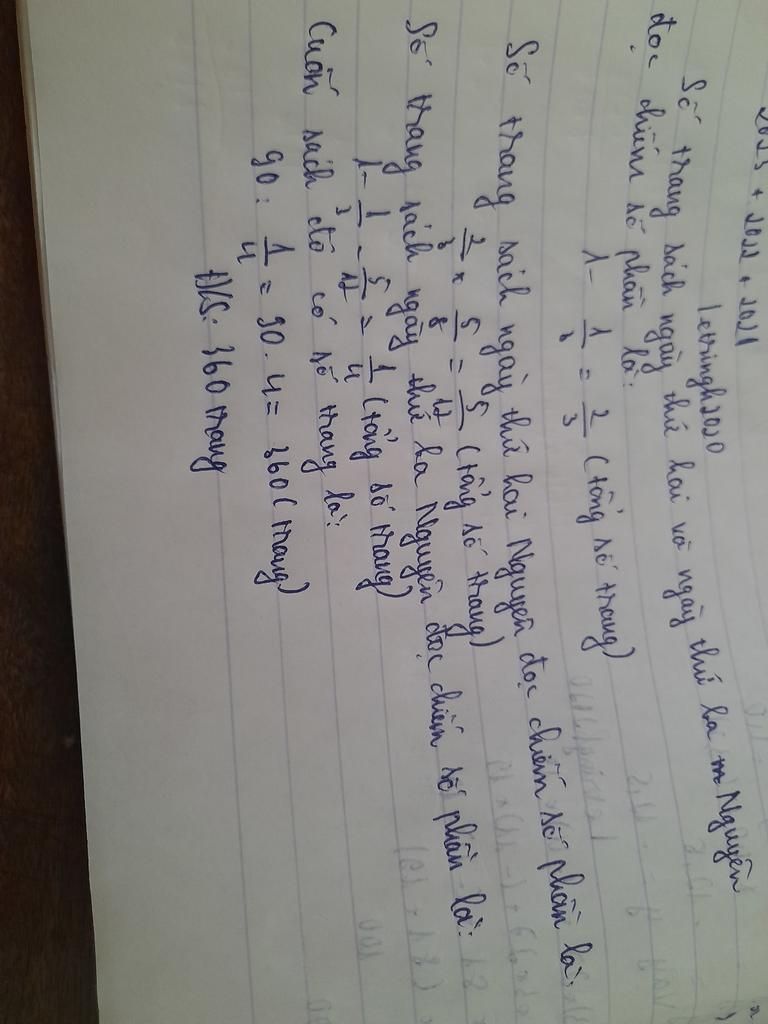 2023 + 2022 + 2021
Số trang sách ngày thứ hai và ngày thứ ba Nguyên
đọc chiếm số phần là:
1 - 1/3 = 2/3 (tổng số trang)
Số trang sách ngày thứ hai Nguyên đọc chiếm số phần là:
2/3 × 5/8 = 5/12 (tổng số trang)
Số trang sách ngày thứ ba Nguyên đọc chiếm số phần là:
1 - 1/3 - 5/12 = 1/4 (tổng số trang)
Cuốn sách đó có số trang là:
90 : 1/4 = 90 . 4 = 360 (trang)
Đ/S: 360 trang